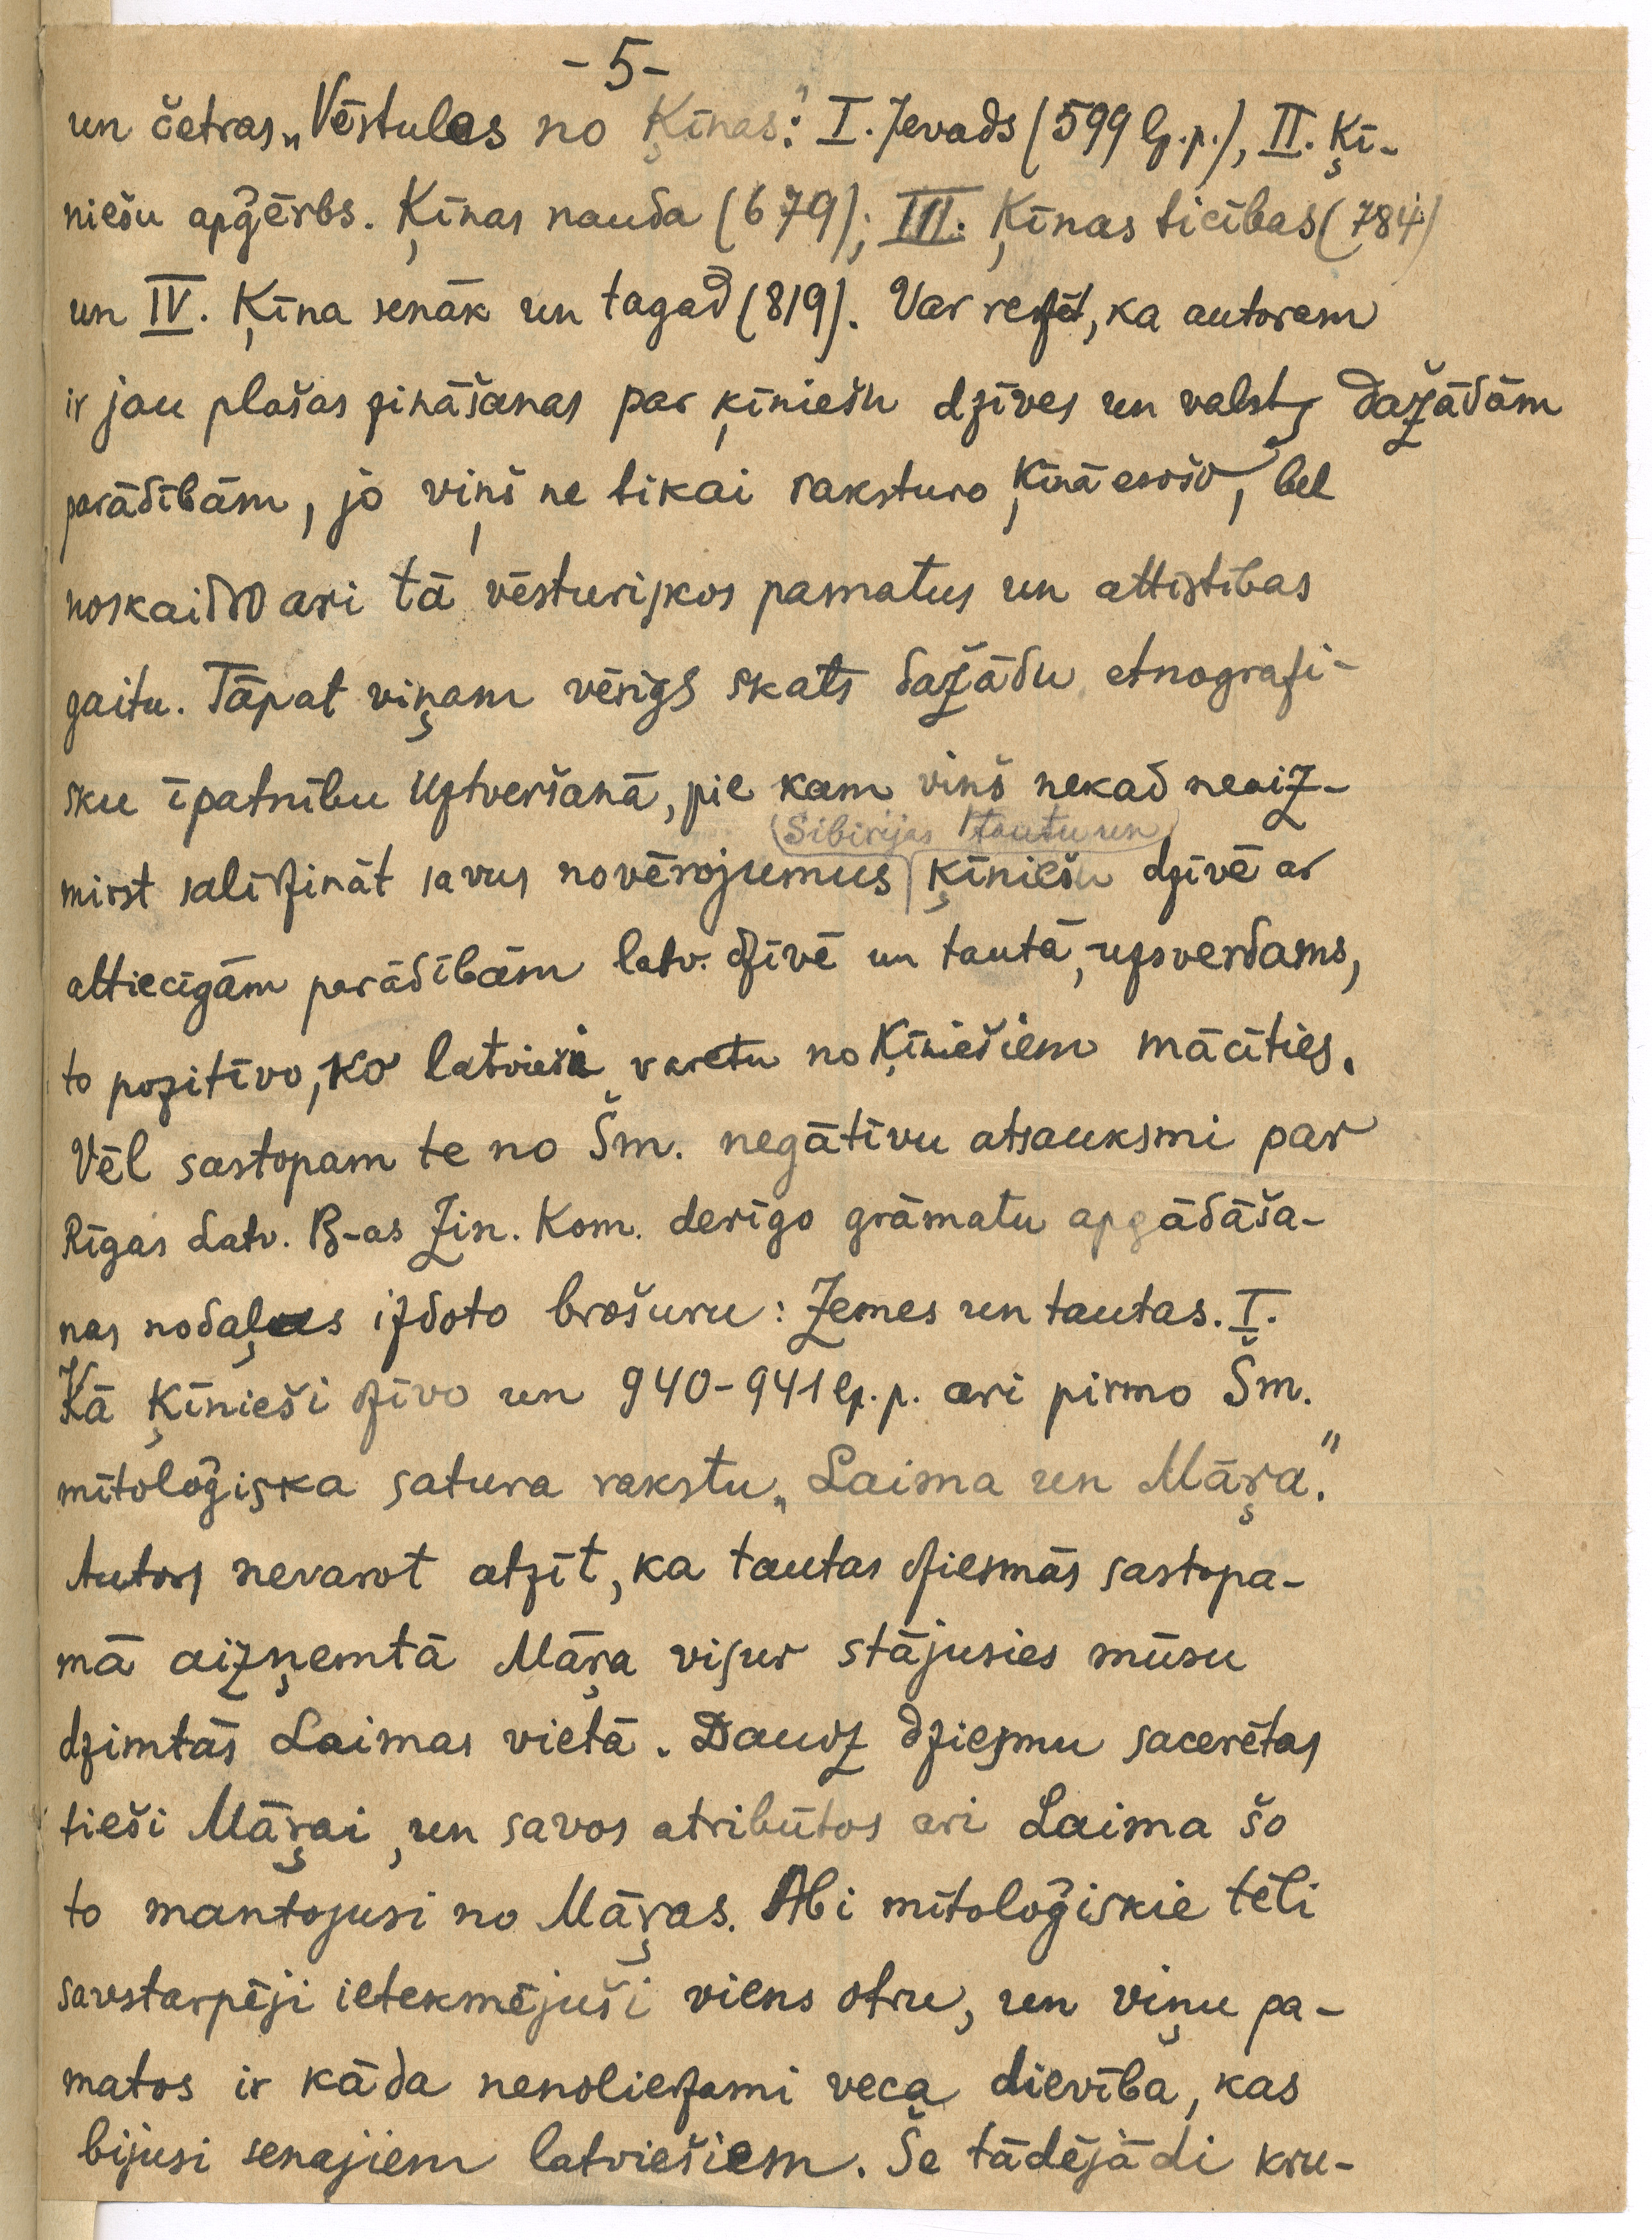 -5-
un četras „Vēstules no Ķīnas": I. Ievads (599 lp.p.), II. Ķī-
niešu apģērbs. Ķīnas nauda (679); III. Ķīnas ticības (784)
un IV. Ķīna senāk un tagad (819). Var redzēt, ka autoram
ir jau plašas zināšanas par ķīniešu dzīves un valsts dažādām
parādībām, jo viņš ne tikai raksturo Ķīnā esošo, bet
noskaidro ari tā vēsturiskos pamatus un attīstības
gaitu. Tāpat viņam vērīgs skats dažādu etnografi-
sku īpatnību uztveršanā, pie kam viņš nekad neaiz-
(Sibirijas tautu un)
mirst salīdzināt savus novērojumus ķīniešu dzīvē ar
attiecīgām parādībām latv. dzīvē un tautā, uzsverdams,
to pozitīvo, ko latvieši varētu no Ķīniešiem mācīties.
Vēl sastopam te no Šm. negātīvu atsauksmi par
Rīgas Latv. B-as Zin. Kom. derīgo grāmatu apgādāša-
nas nodaļas izdoto brošuru: Zemes un tautas. I.
Kā Ķīnieši dzīvo un 940-941 lp.p. ari pirmo Šm.
mītoloģiska satura rakstu „Laima un Māŗa."
Autors nevarot atzīt, ka tautas dziesmās sastopa-
mā aizņemtā Māŗa visur stājusies mūsu
dzimtās Laimas vietā. Daudz dziesmu sacerētas
tieši Māŗai, un savos atribūtos ari Laima šo
to mantojusi no Māŗas. Abi mītoloģiskie tēli
savstarpēji ietekmējuši viens otru, un viņu pa-
matos ir kāda nenoliedzami veca dievība, kas
bijusi senajiem latviešiem. Še tādējādi kru-